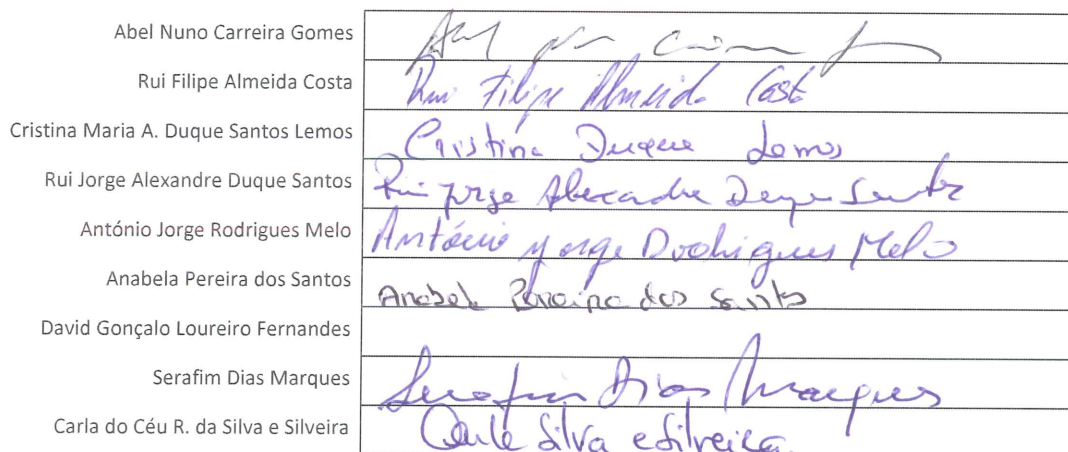 Abel Nuno Carreira Gomes
Rui Filipe Almeida Costa Rui Filipe Almeida Costa
Cristina Maria A. Duque Santos Lemos Cristina Duque Lemos
Rui Jorge Alexandre Duque Santos Rui Jorge Alexandre Duque Santos
António Jorge Rodrigues Melo António Jorge Rodrigues Melo
Anabela Pereira dos Santos Anabela Pereira dos Santos
David Gonçalo Loureiro Fernandes
Serafim Dias Marques Serafim Dias Marques
Carla do Céu R. da Silva e Silveira Carla Silva e Silveira